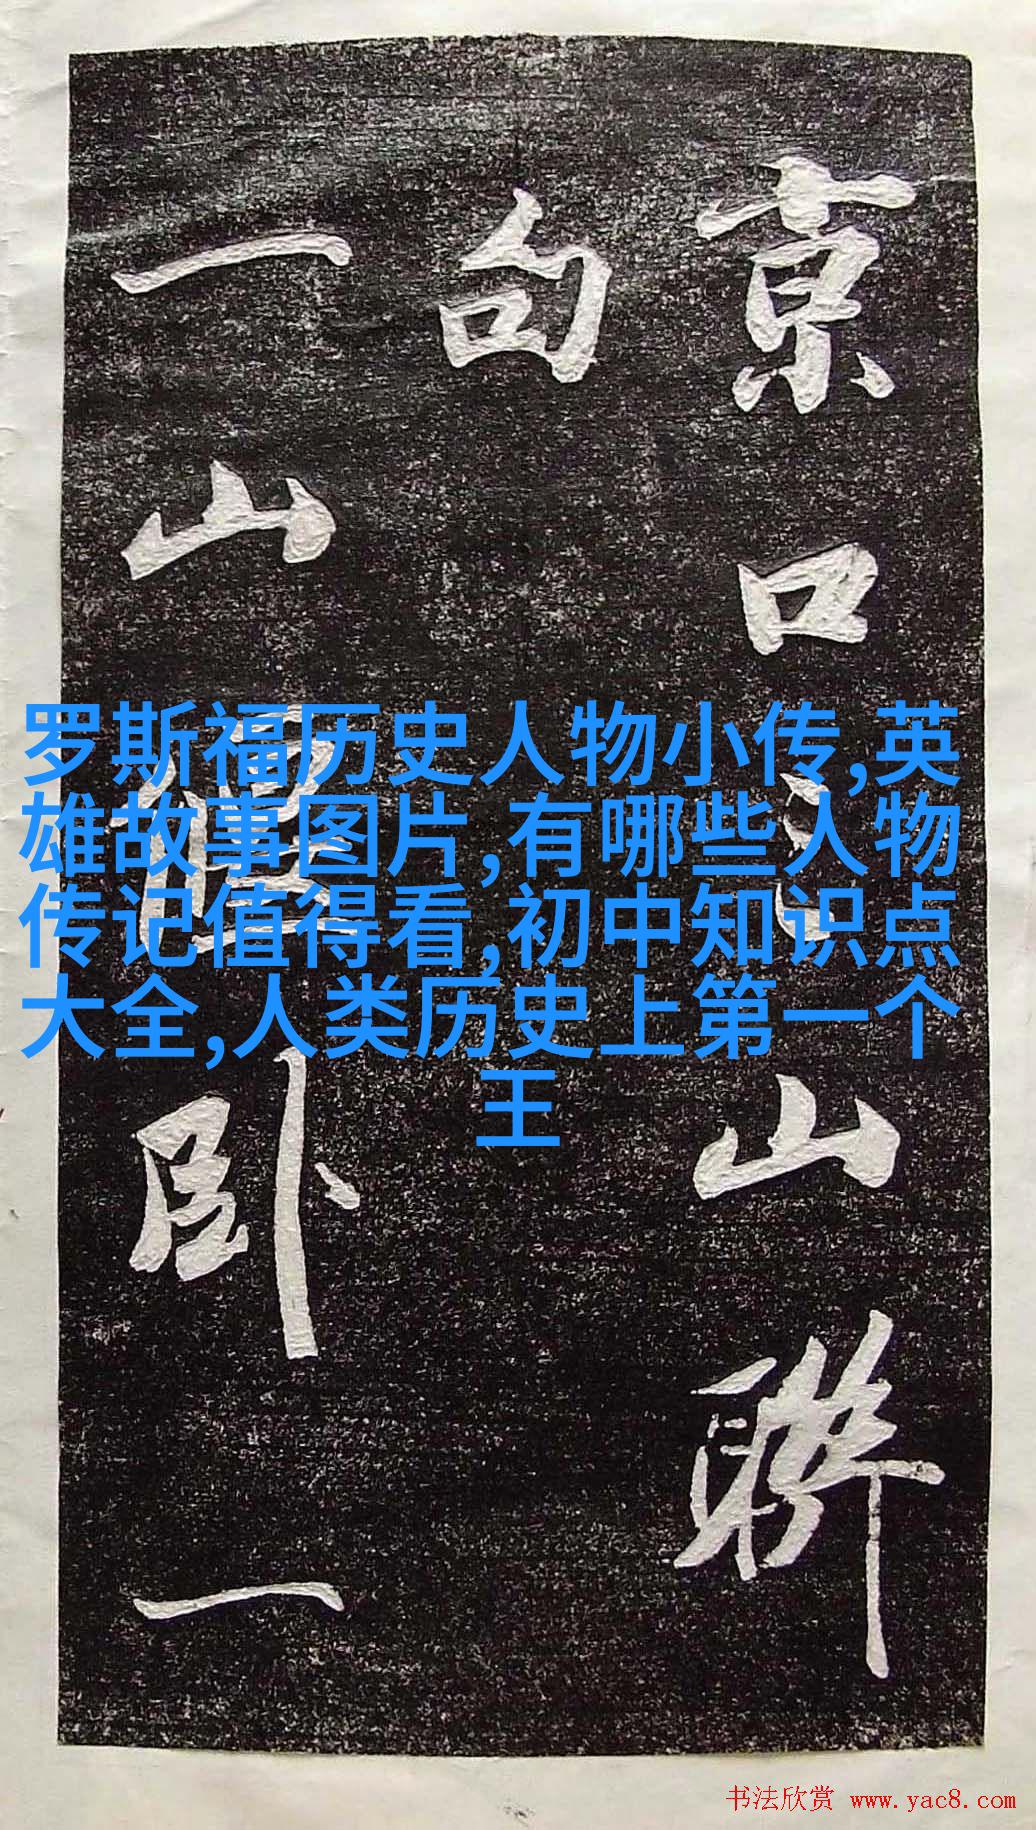 京口三山聯
句
一山體卧一
罗斯福历史人物小传,英
雄故事图片,有哪些人物
传记值得看,初中知识点
大全,人类历史上第一个
王
书法欣赏 www.yac8.com